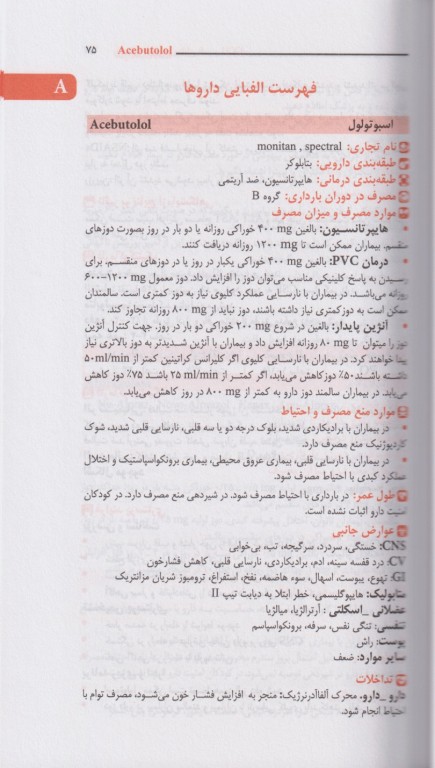 ۷۵ Acebutolol
A
فهرست الفبایی داروها
اسبوتولول Acebutolol
نام تجاری: monitan , spectral
طبقه‌بندی دارویی: بتابلوکر
طبقه‌بندی درمانی: هایپرتانسیون، ضد آریتمی
مصرف در دوران بارداری: گروه B
موارد مصرف و میزان مصرف
• هایپرتانسیون: بالغین mg ۴۰۰ خوراکی روزانه یا دو بار در روز بصورت دوزهای
منقسم. بیماران ممکن است تا mg ۱۲۰۰ روزانه دریافت کنند.
• درمان PVC: بالغین mg ۴۰۰ خوراکی یکبار در روز یا در دوزهای منقسم. برای
رسیدن به پاسخ کلینیکی مناسب می‌توان دوز را افزایش داد. دوز معمول mg ۱۲۰۰-۶۰۰
روزانه می‌باشد. در بیماران با نارسایی عملکرد کلیوی نیاز به دوز کمتری است. سالمندان
ممکن است به دوز کمتری نیاز داشته باشند، دوز نباید از mg ۸۰۰ روزانه تجاوز کند.
• آنژین پایدار: بالغین در شروع mg ۲۰۰ خوراکی دو بار در روز. جهت کنترل آنژین
دوز را میتوان تا mg ۸۰ روزانه افزایش داد و بیماران با آنژین شدیدتر به دوز بالاتری نیاز
پیدا خواهند کرد. در بیماران با نارسایی کلیوی اگر کلیرانس کراتینین کمتر از ۵۰ml/min
داشته باشند ۵۰٪ دوز کاهش می‌یابد، اگر کمتر از ۲۵ ml/min باشد ۷۵٪ دوز کاهش
می‌یابد. در بیماران سالمند دوز دارو به کمتر از mg ۸۰۰ در روز کاهش می‌یابد.
موارد منع مصرف و احتیاط
• در بیماران با برادیکاردی شدید، بلوک درجه دو یا سه قلبی، نارسایی قلبی شدید، شوک
کاردیوژنیک منع مصرف دارد.
• در بیماران با نارسایی قلبی، بیماری عروق محیطی، بیماری برونکواسپاستیک و اختلال
عملکرد کبدی با احتیاط مصرف شود.
طول عمر: در بارداری با احتیاط مصرف شود. در شیردهی منع مصرف دارد. در کودکان
امنیت دارو اثبات نشده است.
عوارض جانبی
CNS: خستگی، سردرد، سرگیجه، تب، بی‌خوابی
CV: درد قفسه سینه، ادم، برادیکاردی، نارسایی قلبی، کاهش فشارخون
GI: تهوع، یبوست، اسهال، سوء هاضمه، نفخ، استفراغ، ترومبوز شریان مزانتریک
متابولیک: هایپوگلیسمی، خطر ابتلا به دیابت تیپ II
عضلانی _ اسکلتی: آرترالژیا، میالژیا
تنفسی: تنگی نفس، سرفه، برونکواسپاسم
پوست: راش
سایر موارد: ضعف
تداخلات
دارو _ دارو. محرک آلفاآدرنرژیک: منجر به افزایش فشار خون می‌شود، مصرف توام با
احتیاط انجام شود.